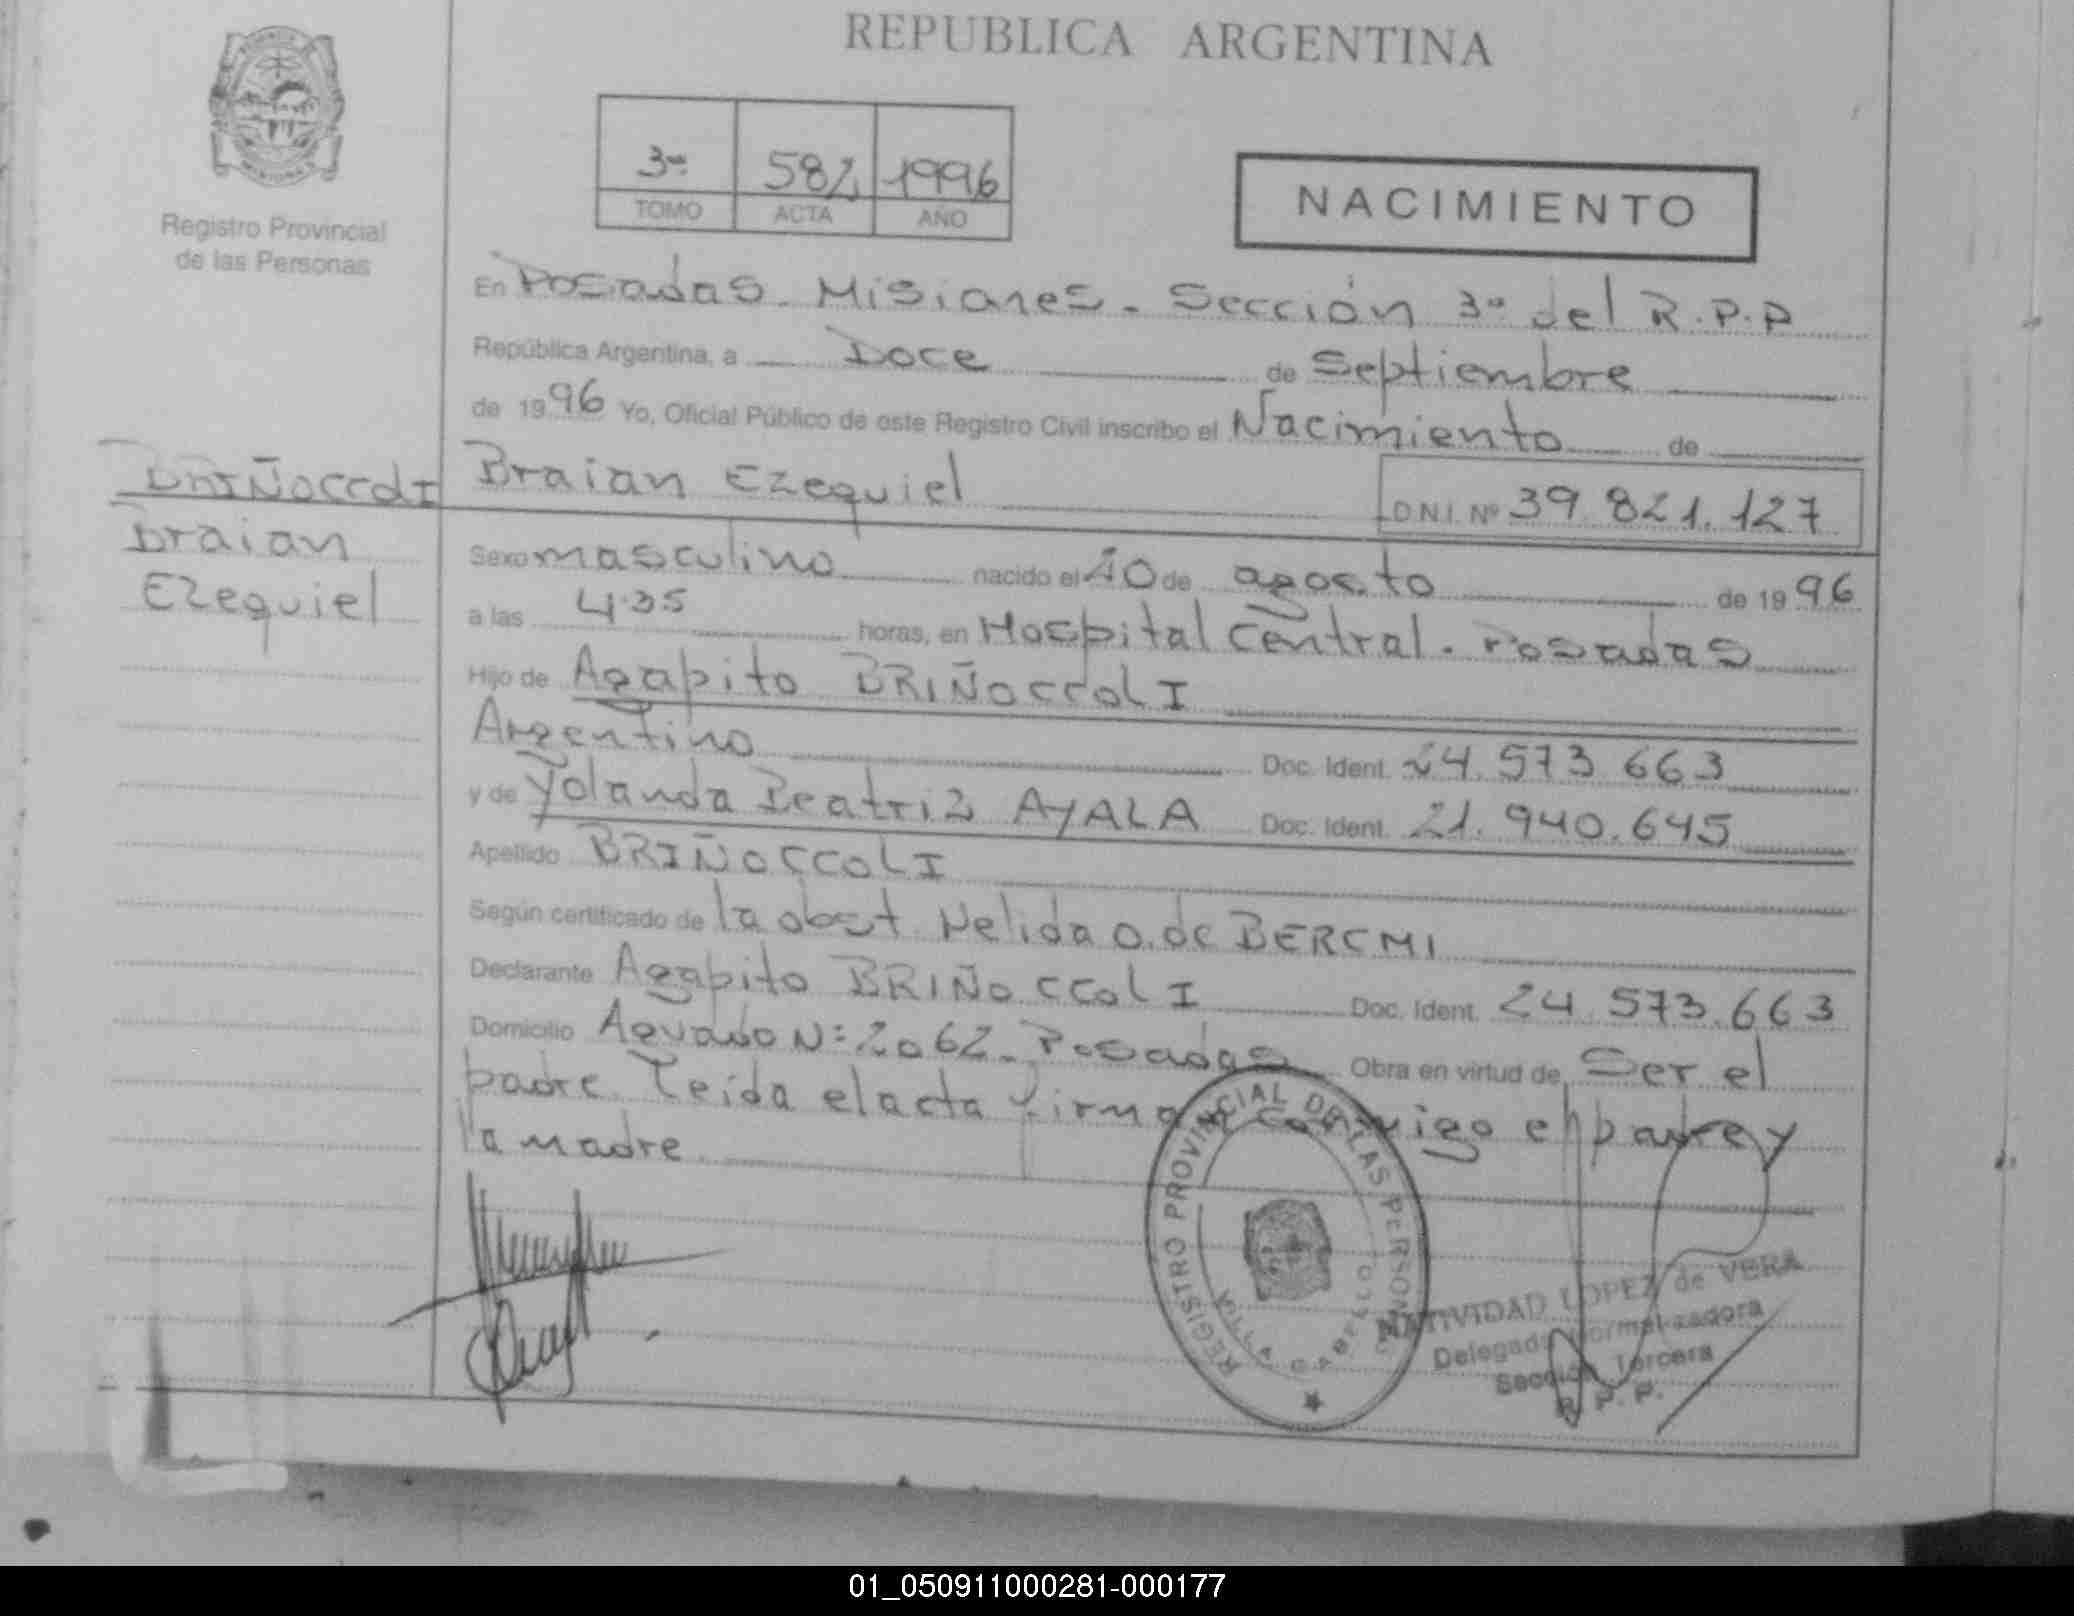 REPUBLICA ARGENTINA
Registro Provincial
de las Personas
3ª 582 1996
TOMO ACTA AÑO
NACIMIENTO
En Posadas - Misiones - Sección 3ª del R.P.P
República Argentina, a Doce de Septiembre
de 1996 Yo, Oficial Público de este Registro Civil inscribo el Nacimiento de
BRIÑOCCOLI
Braian
Ezequiel
Braian Ezequiel D.N.I. Nº 39.821.127
Sexo masculino nacido el 10 de agosto de 1996
a las 4.35 horas, en Hospital Central. Posadas
Hijo de Agapito BRIÑOCCOLI
Argentino Doc. Ident. 24.573.663
y de Yolanda Beatriz AYALA Doc. Ident. 21.940.645
Apellido BRIÑOCCOLI
Según certificado de la obst Nelida O. de
Declarante Agapito BRIÑOCCOLI Doc. Ident. 24.573.663
Domicilio Aguado Nº 2062 - Posadas Obra en virtud de Ser el
padre. Leída el acta firman conmigo el padre y
la madre
REGISTRO PROVINCIAL DE LAS PERSONAS
VILLA CABELLO
NATIVIDAD LOPEZ de VERA
Delegada Normalizadora
Sección Tercera
R. P. P.
01_050911000281-000177